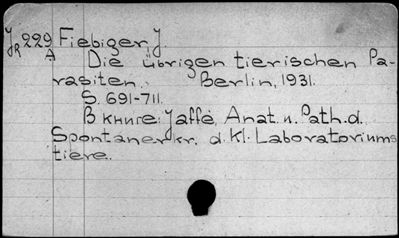 JR 229 Fiebiger, J.
A Die übrigen tierischen Pa-
rasiten. Berlin, 1931.
S. 691-711.
В книге: Jaffé, Anat. u. Path. d.
Spontanerkr. d. Kl. Laboratoriums
tiere.